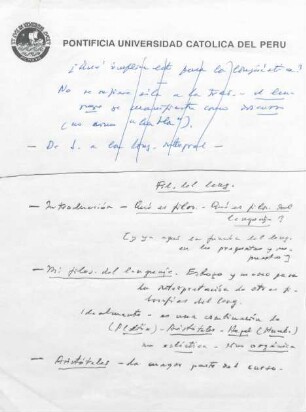 PONTIFICIA UNIVERSIDAD CATOLICA DEL PERU
¿Qué implica esto para la lingüística?
No se refiere sólo a la - el len-
guaje se manifiesta como discurso
(no como "habla").
- De S. a la ling. integral -
Fil. del leng.
- Introducción - Qué es filos. - Qué es filos. del
lenguaje?
(y ya aquí en función del leng.
en las preguntas y res-
puestas)
- Mi filos. del lenguaje. Esbozo y marco para
la interpretación de otras fi-
losofías del leng.
Idealmente - es una continuación de
(Platón) - Aristóteles - Hegel - (Humb.)
no ecléctica - sino orgánica
- Aristóteles - La mayor parte del curso.